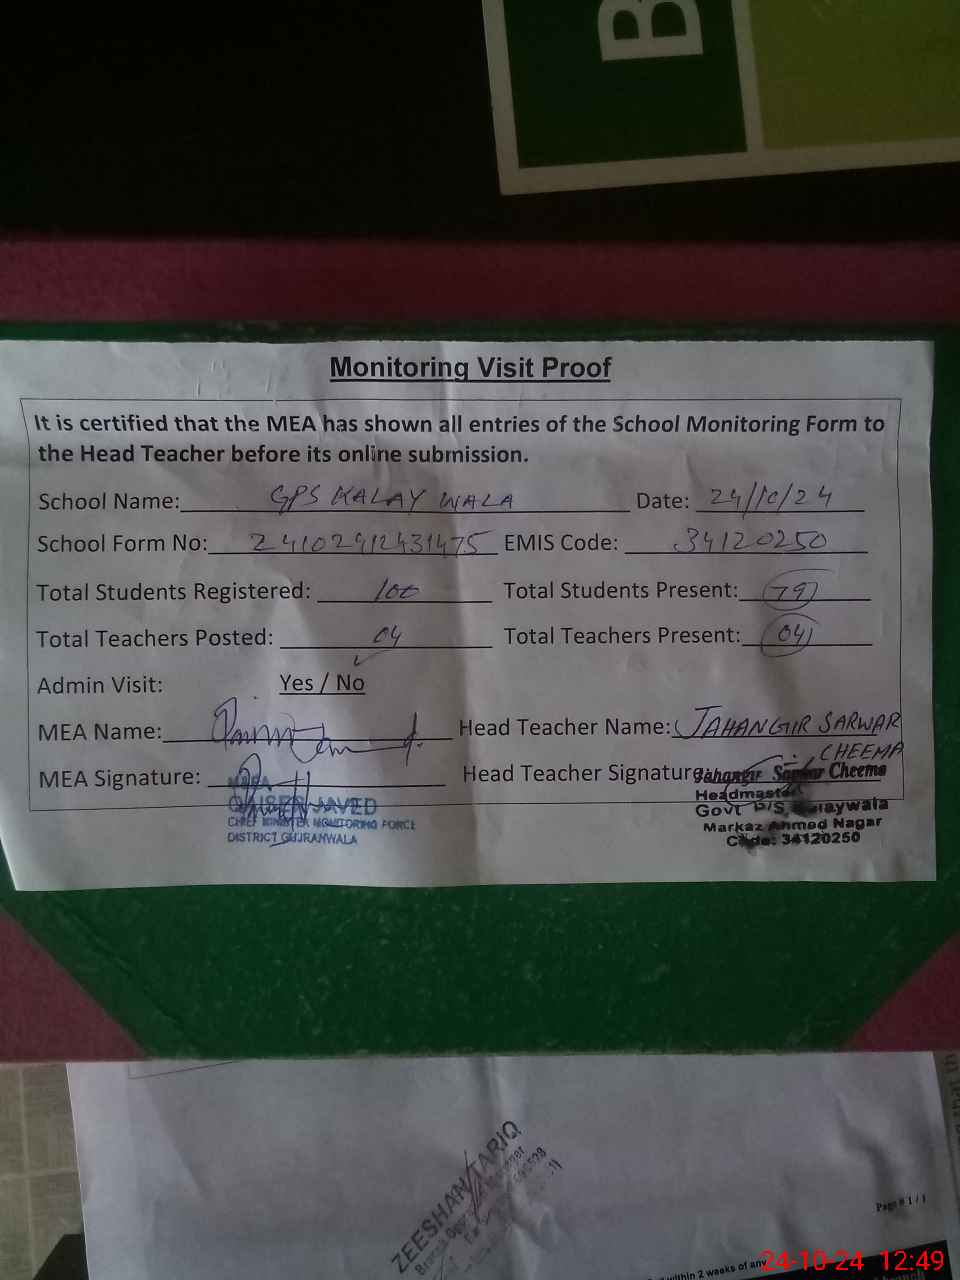 B
Monitoring Visit Proof
It is certified that the MEA has shown all entries of the School Monitoring Form to
the Head Teacher before its online submission.
School Name: GPS KALAY WALA Date: 24/10/24
School Form No: 24102412431475 EMIS Code: 34120250
Total Students Registered: 100 Total Students Present: 79
Total Teachers Posted: 04 Total Teachers Present: 04
Admin Visit: Yes / No
MEA Name: Head Teacher Name: JAHANGIR SARWAR
CHEEMA
MEA Signature: Head Teacher Signature:
Jahangir Sarwar Cheema
Headmaster
Govt P/S, Kalaywala
Markaz Ahmed Nagar
Code: 34120250
QAISER JAVED
CHIEF MINISTER MONITORING FORCE
DISTRICT GUJRANWALA
ZEESHAN TARIQ
Page # 1 / 1
within 2 weeks of any
24-10-24 12:49